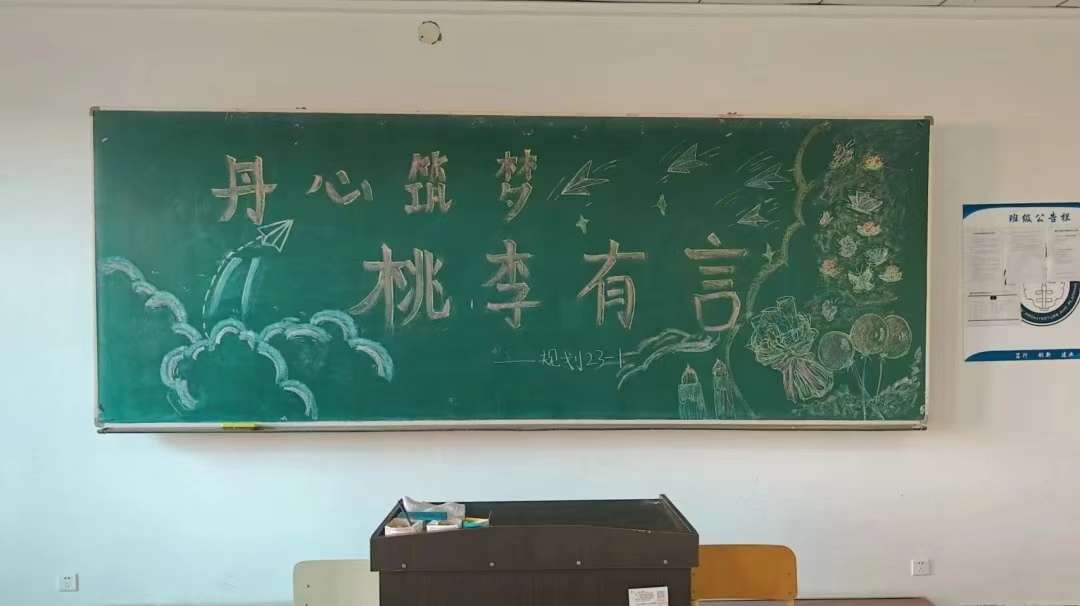 丹心筑梦
桃李有言
——规划23-1
班级公告栏
ARCHITECTURE AND PLANN
笃行 创新